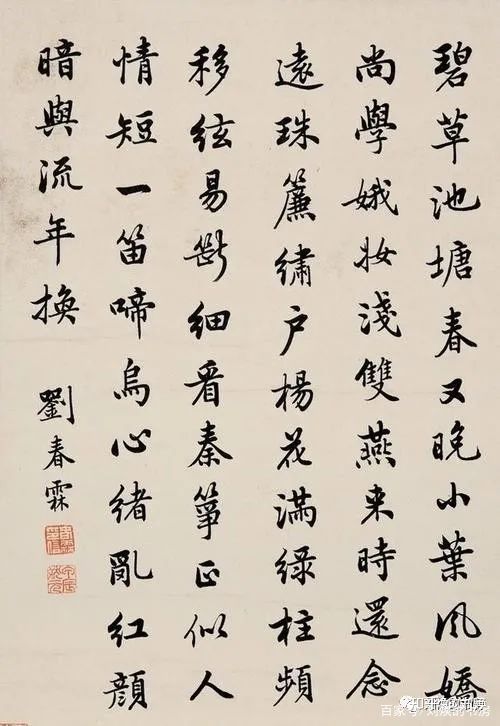 碧草池塘春又晚小葉風嬌
尚學娥妝淺雙燕来時還念
遠珠簾繡户楊花滿綠柱頻
移絃易斷細看秦箏正似人
情短一笛啼烏心緒亂紅顏
暗與流年換
劉春霖
百家号